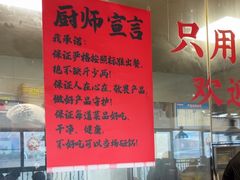 厨师宣言
我承诺:
保证严格按照标准出餐,
绝不缺斤少两!
保证人在心在,敬畏产品,
做好产品守护!
保证每道菜品好吃、
干净、健康,
不好吃可以当场砸锅!
只用
欢迎